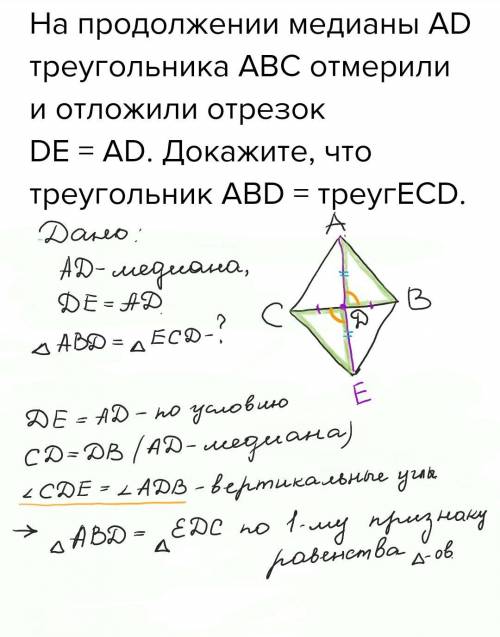 На продолжении медианы AD
треугольника ABC отмерили
и отложили отрезок
DE = AD. Докажите, что
треугольник ABD = треугECD.
Дано:
AD-медиана,
DE = AD.
△ABD = △ECD-?
A
C
B
D
E
DE = AD - по условию
CD = DB (AD-медиана)
∠CDE = ∠ADB - вертикальные углы
→ △ABD = △EDC по 1-му признаку
равенства △-ов